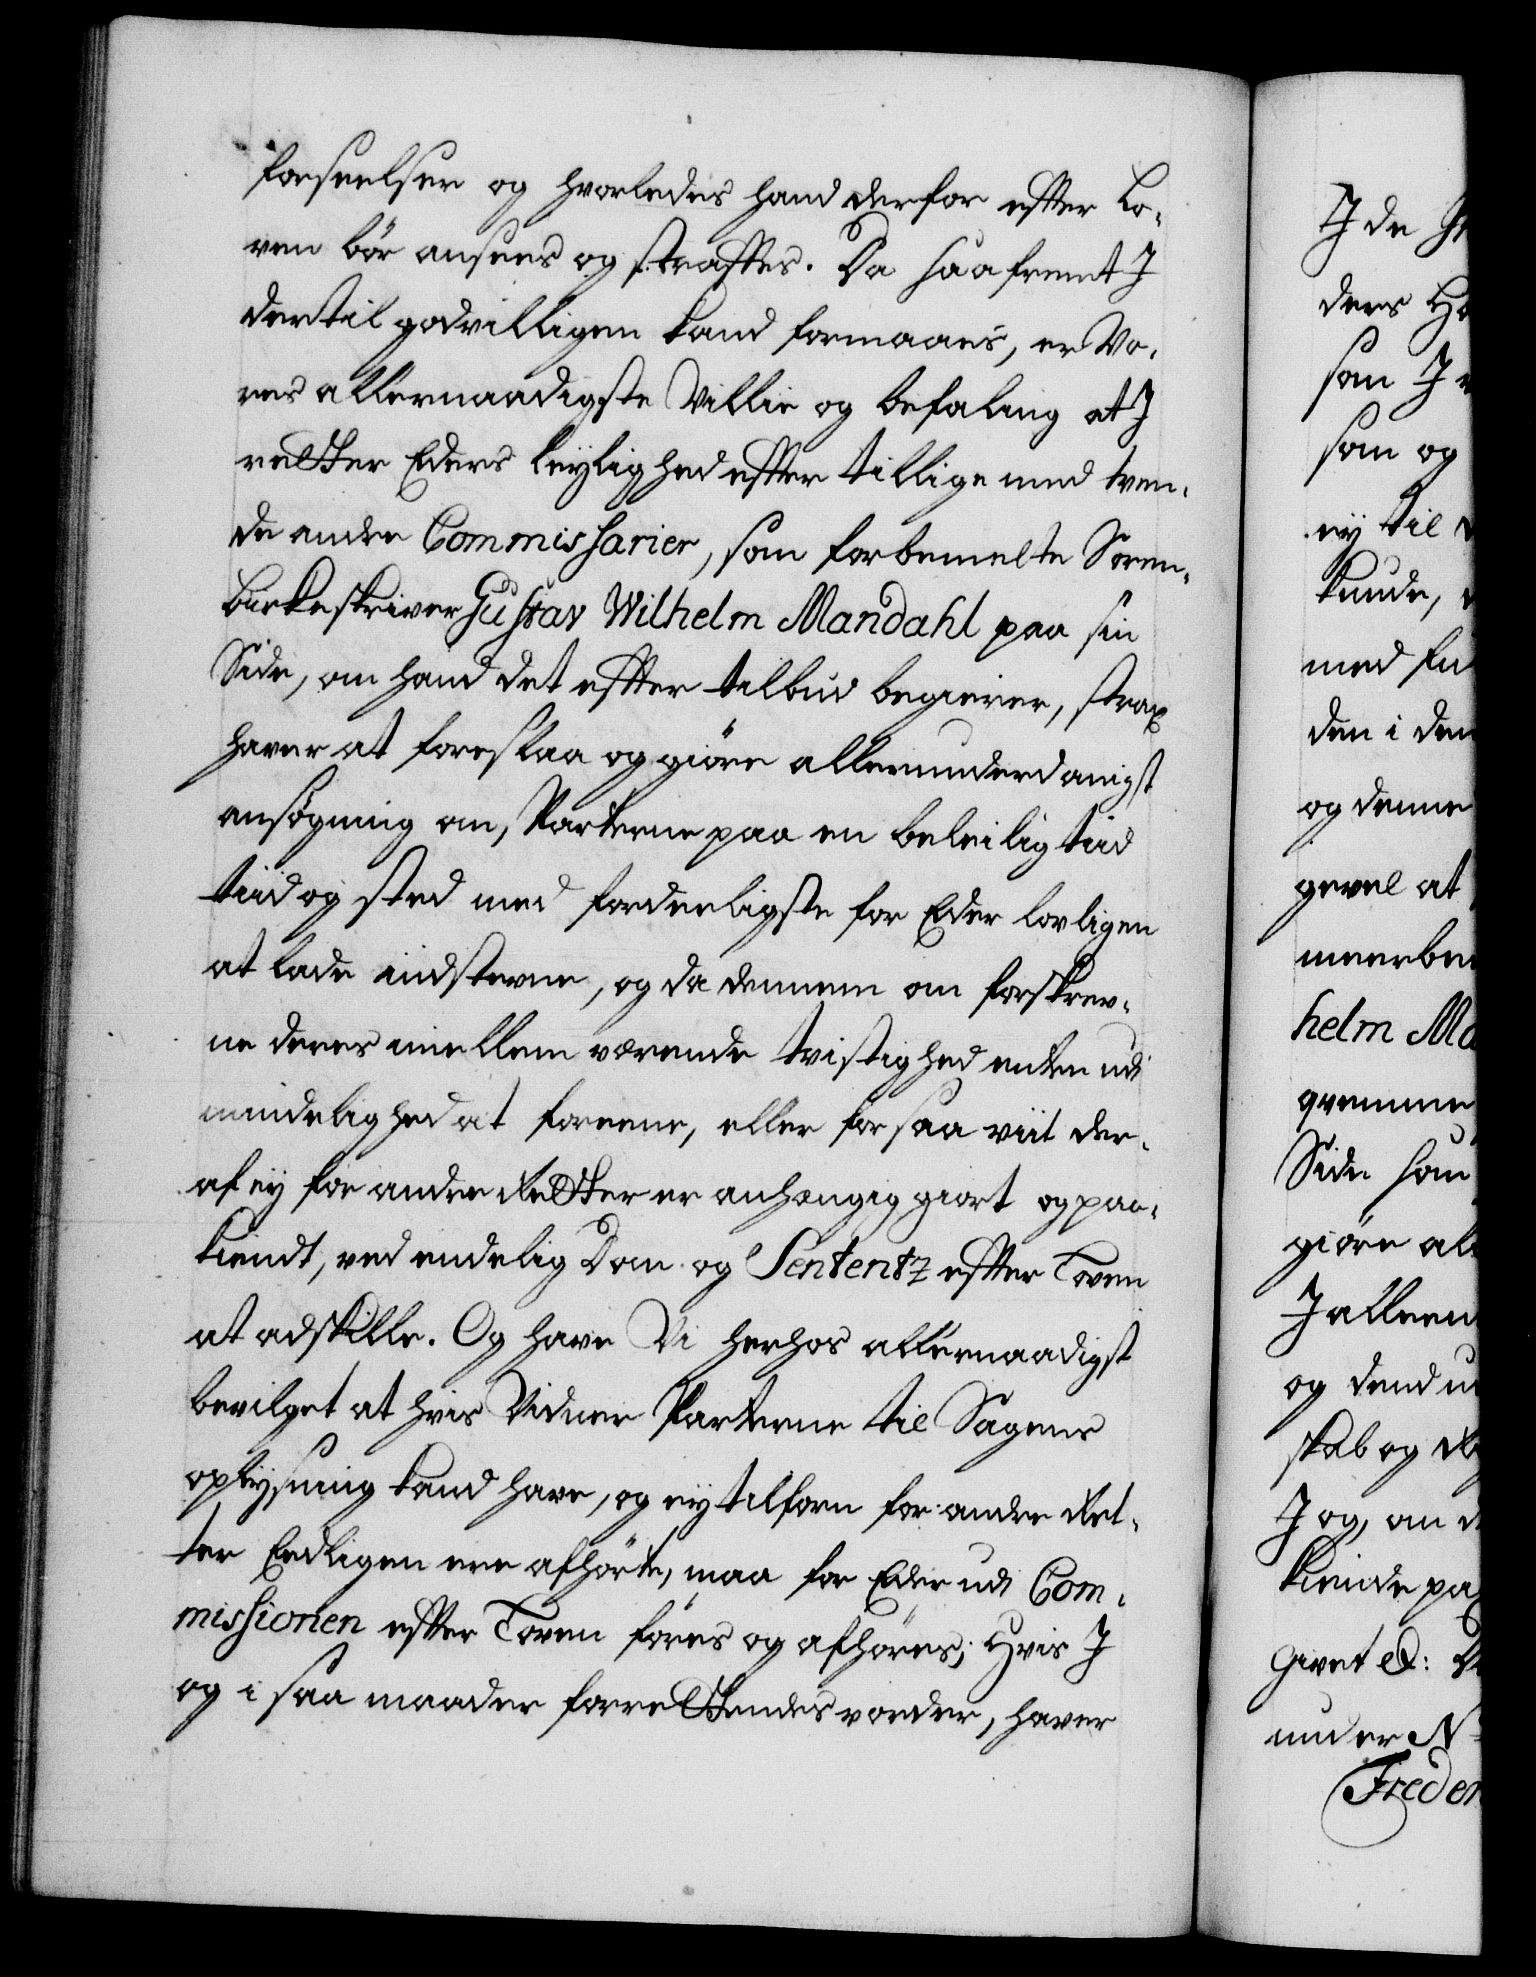 forseelser og hvorledes hand derfor efter Lo-
ven bör ansees og straffes. Da saafremt I
dertil godvilligen kand formaaes, er Vo-
res allernaadigste Villie og befaling at I
retter Eders leylighed efter tillige med tven-
de andre Commissarier, som forbemelte Soren-
birkeskriver Gustav Wilhelm Mandahl paa sin
Side, om hand det efter tilbud begierer, strax
haver at foreslaa og giöre allerunderdanigst
ansögning om, Parterne paa en beleilig tiid
tiid og sted med forderligste for Eder lovligen
at lade indstevne, og da dennem om forskrev-
ne deres imellem værende tvistighed enten udi
mindelighed at foreene, eller for saa viit der-
af ey for andre Retter er anhængig giort og paa-
kiendt, ved endelig Dom og Sententz efter Loven
at adskille. Og have Vi herhos allernaadigst
bevilget at hvis Vidner Parterne til Sagens
oplysning kand have, og ey tilforn for andre Ret-
ter Eedligen ere afhörte, maa for Eder udi Com-
missionen efter Loven föres og afhöres; Hvis I
og i saa maader forrettendes vorder, haver
I de
ders
som I
som og
ey til
kunde,
med
den i den
og denne
gevel at
helm
Side
giöre
I alleene
og dend
skab og
I og, om
kiende
Givet &:
under N